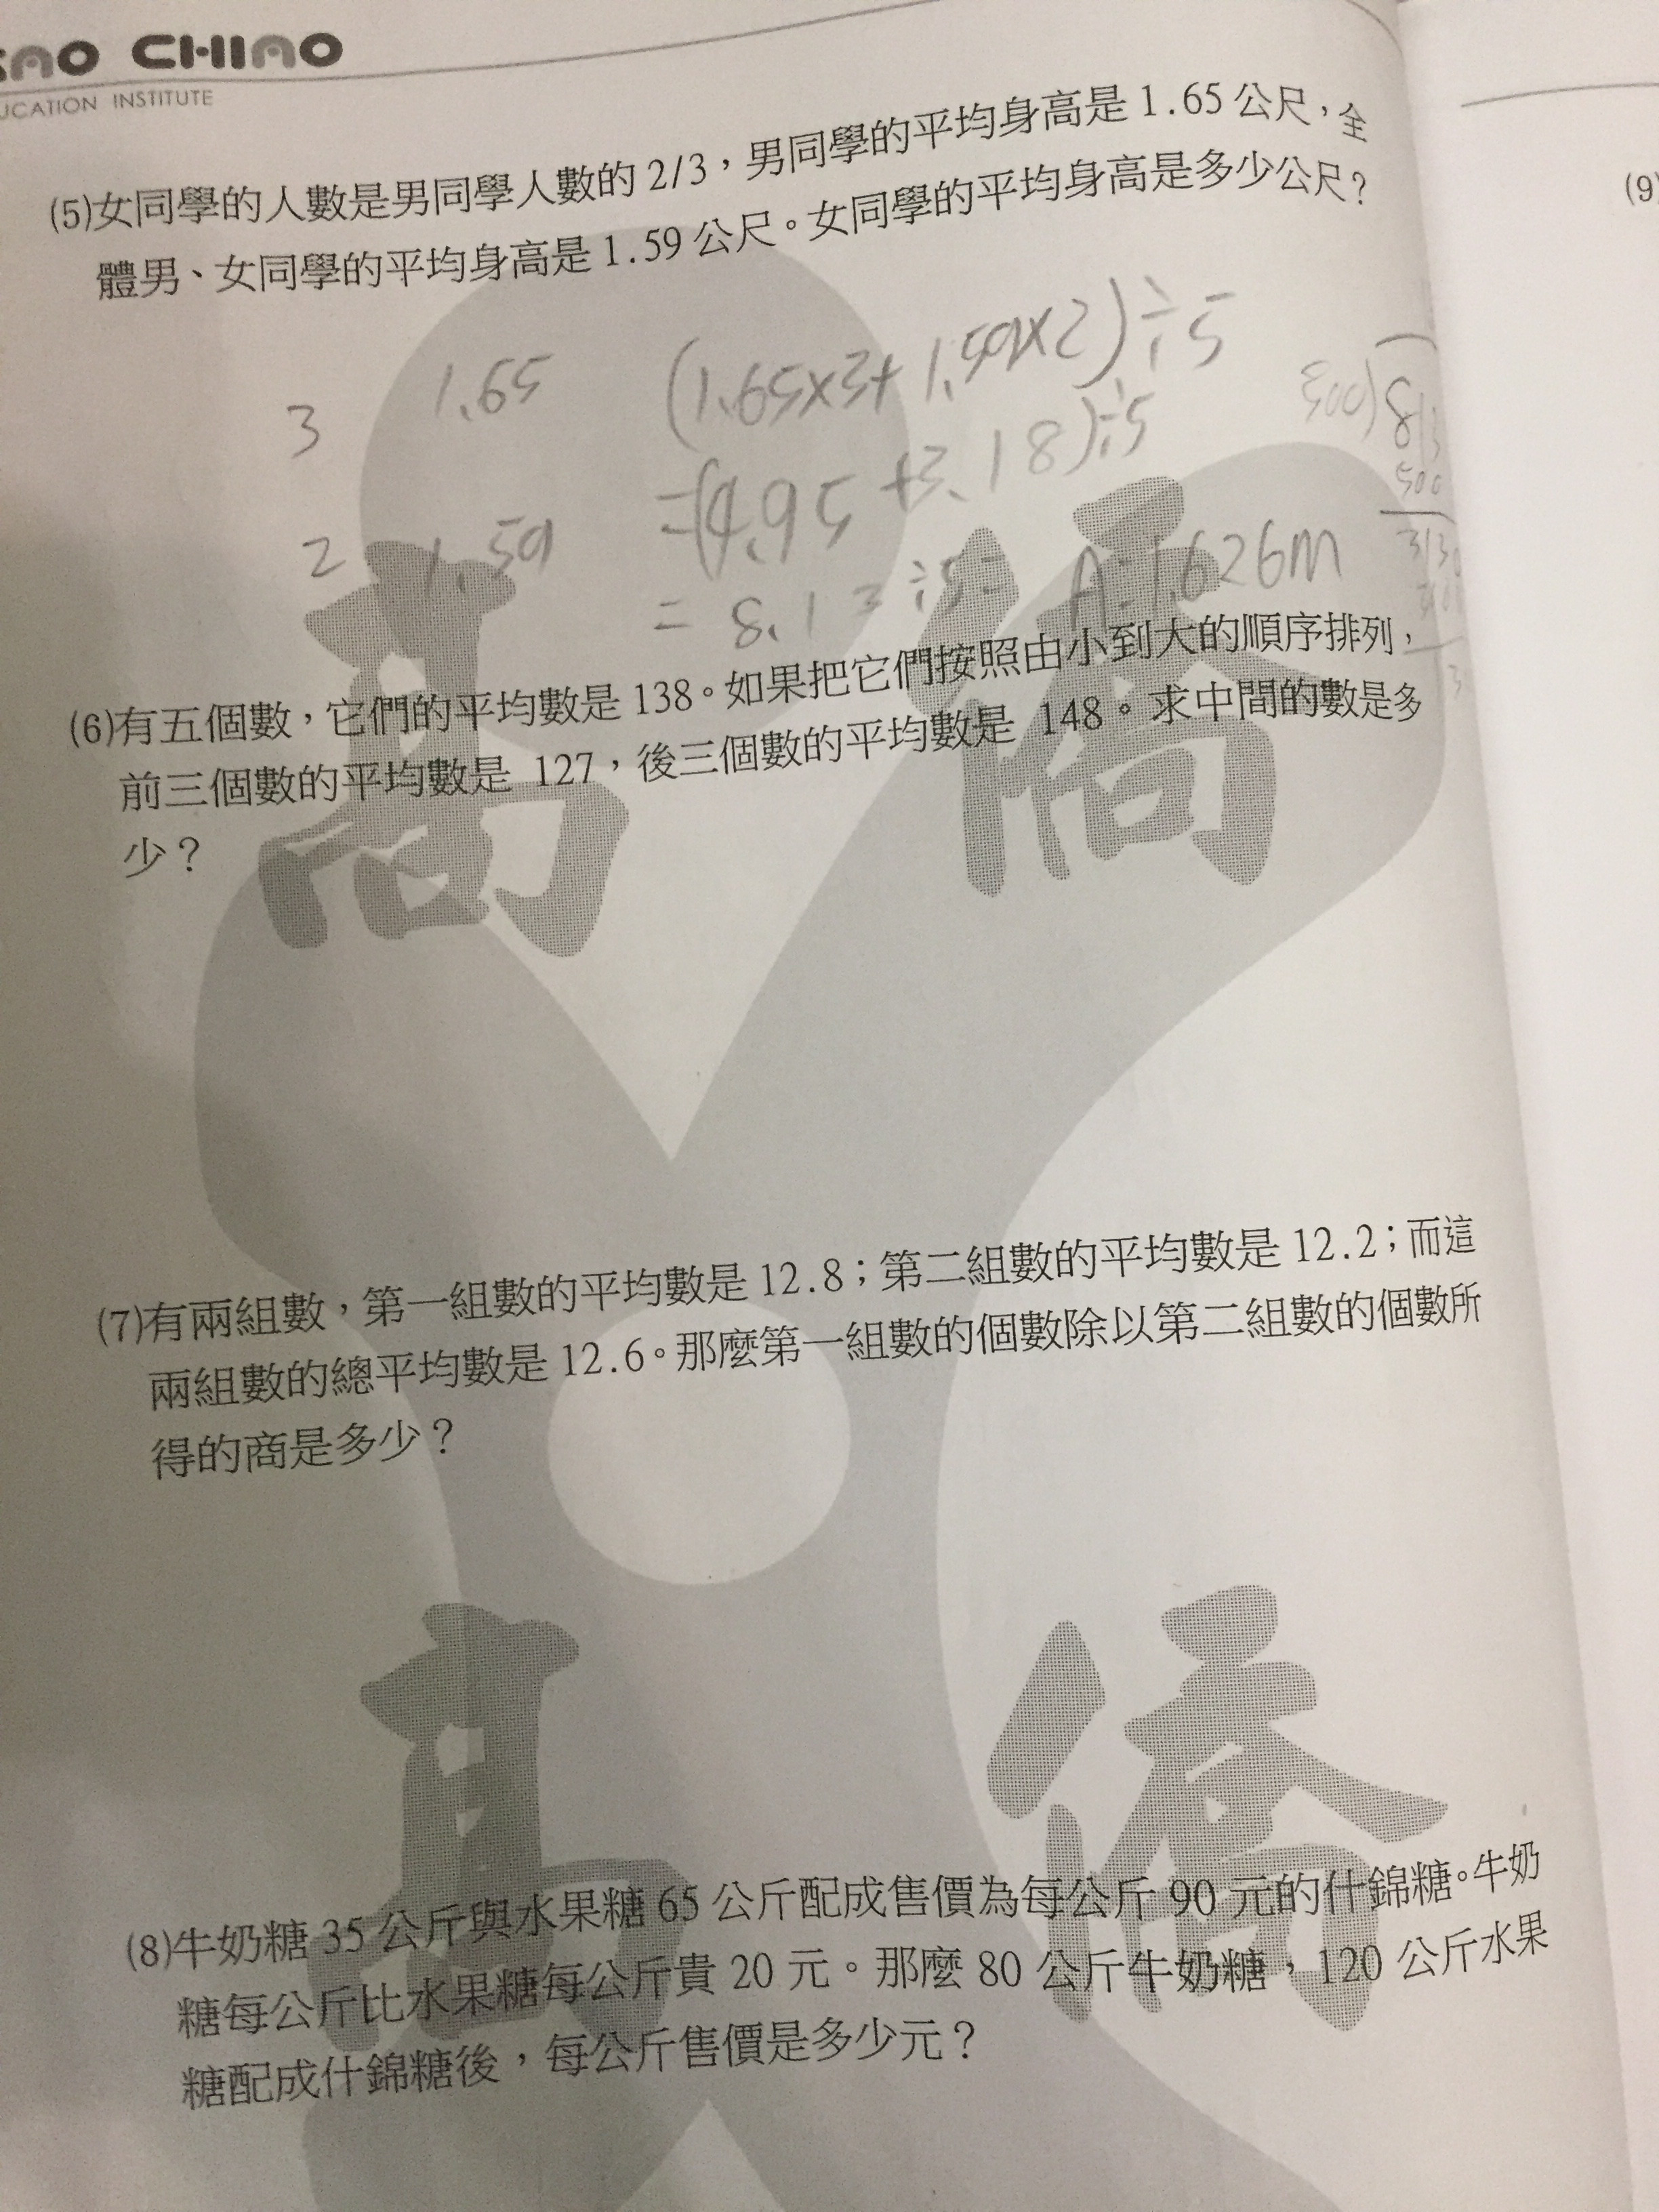 CHIAO
INSTITUTE
(5)女同學的人數是男同學人數的2/3，男同學的平均身高是1.65公尺，全
體男、女同學的平均身高是1.59公尺。女同學的平均身高是多少公尺?
3 1.65 (1.65×3+1.59×2)÷5
=(4.95+3.18)÷5
2 1.59
=8.13÷5= A=1.626m
(6)有五個數，它們的平均數是138。如果把它們按照由小到大的順序排列，
前三個數的平均數是 127，後三個數的平均數是 148。求中間的數是多
少？
(7)有兩組數，第一組數的平均數是12.8；第二組數的平均數是12.2；而這
兩組數的總平均數是12.6。那麼第一組數的個數除以第二組數的個數所
得的商是多少？
(8)牛奶糖 35 公斤與水果糖 65 公斤配成售價為每公斤 90 元的什錦糖。牛奶
糖每公斤比水果糖每公斤貴 20 元。那麼 80 公斤牛奶糖，120 公斤水果
糖配成什錦糖後，每公斤售價是多少元？
高僑
高僑
(9)